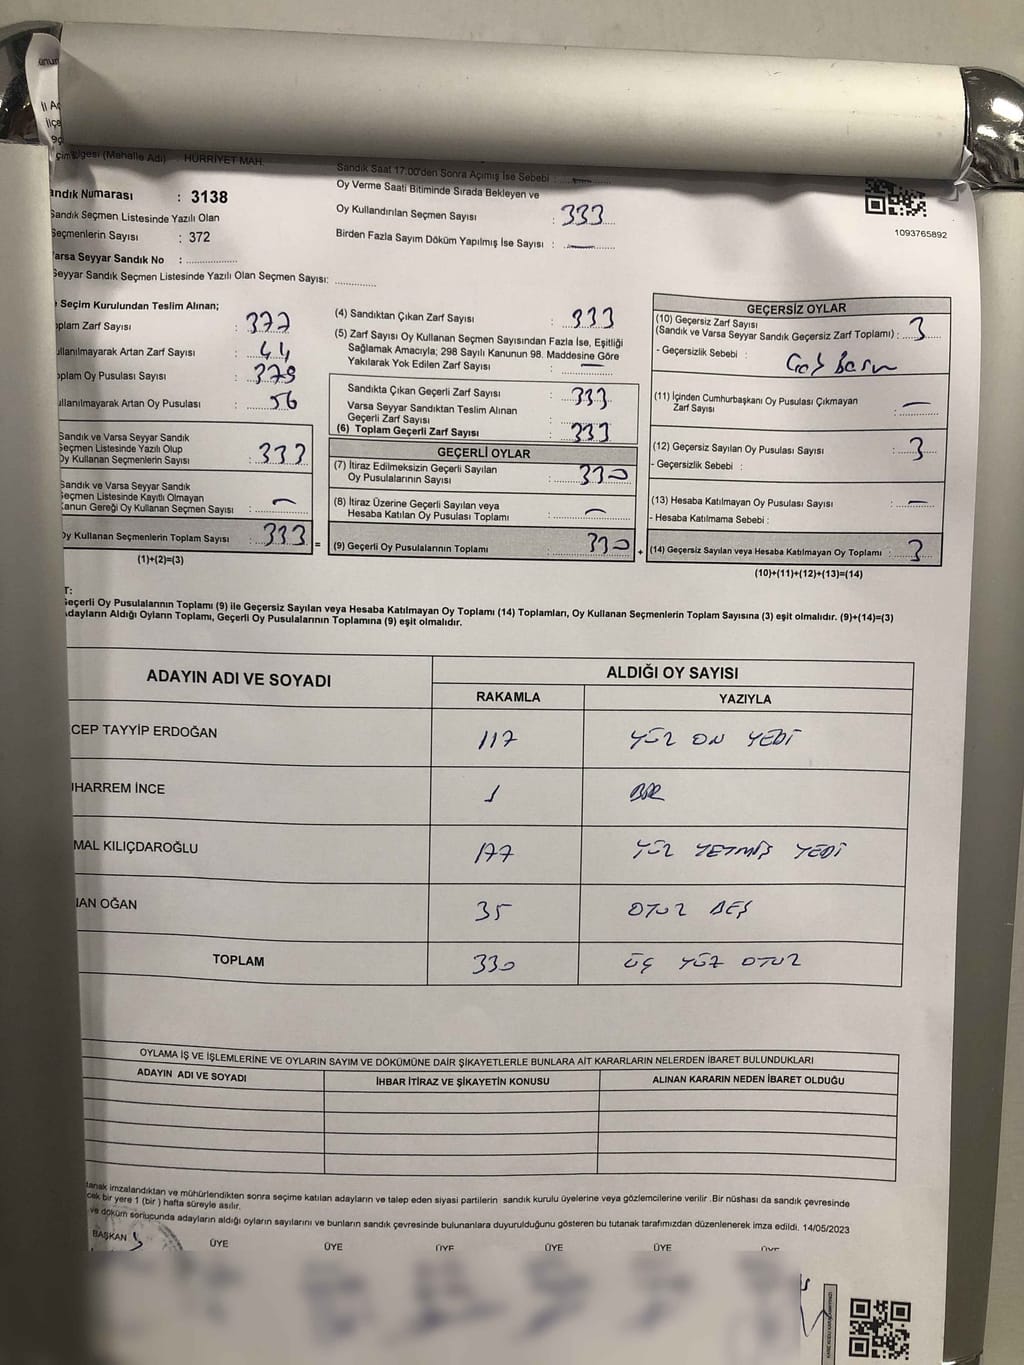 çim Bölgesi (Mahalle Adı) : HÜRRİYET MAH.
andık Numarası : 3138
Sandık Seçmen Listesinde Yazılı Olan
Seçmenlerin Sayısı : 372
arsa Seyyar Sandık No :
Seyyar Sandık Seçmen Listesinde Yazılı Olan Seçmen Sayısı:
Sandık Saat 17:00'den Sonra Açımış İse Sebebi : —
Oy Verme Saati Bitiminde Sırada Bekleyen ve
Oy Kullandırılan Seçmen Sayısı : 333
Birden Fazla Sayım Döküm Yapılmış İse Sayısı : —
1093765892
Seçim Kurulundan Teslim Alınan;
plam Zarf Sayısı : 377
ullanılmayarak Artan Zarf Sayısı : 44
oplam Oy Pusulası Sayısı : 379
ullanılmayarak Artan Oy Pusulası : 56
Sandık ve Varsa Seyyar Sandık
Seçmen Listesinde Yazılı Olup
Oy Kullanan Seçmenlerin Sayısı : 333
Sandık ve Varsa Seyyar Sandık
Seçmen Listesinde Kayıtlı Olmayan
Kanun Gereği Oy Kullanan Seçmen Sayısı : —
Oy Kullanan Seçmenlerin Toplam Sayısı : 333 =
(1)+(2)=(3)
(4) Sandıktan Çıkan Zarf Sayısı : 333
(5) Zarf Sayısı Oy Kullanan Seçmen Sayısından Fazla İse, Eşitliği
Sağlamak Amacıyla; 298 Sayılı Kanunun 98. Maddesine Göre
Yakılarak Yok Edilen Zarf Sayısı : —
Sandıkta Çıkan Geçerli Zarf Sayısı : 333
Varsa Seyyar Sandıktan Teslim Alınan
Geçerli Zarf Sayısı :
(6) Toplam Geçerli Zarf Sayısı : 333
GEÇERLİ OYLAR
(7) İtiraz Edilmeksizin Geçerli Sayılan
Oy Pusulalarının Sayısı : 330
(8) İtiraz Üzerine Geçerli Sayılan veya
Hesaba Katılan Oy Pusulası Toplamı : —
(9) Geçerli Oy Pusulalarının Toplamı : 330 +
GEÇERSİZ OYLAR
(10) Geçersiz Zarf Sayısı
(Sandık ve Varsa Seyyar Sandık Geçersiz Zarf Toplamı) : 3
- Geçersizlik Sebebi :
(11) İçinden Cumhurbaşkanı Oy Pusulası Çıkmayan
Zarf Sayısı : —
(12) Geçersiz Sayılan Oy Pusulası Sayısı : 3
- Geçersizlik Sebebi :
(13) Hesaba Katılmayan Oy Pusulası Sayısı : —
- Hesaba Katılmama Sebebi :
(14) Geçersiz Sayılan veya Hesaba Katılmayan Oy Toplamı : 3
(10)+(11)+(12)+(13)=(14)
T:
Geçerli Oy Pusulalarının Toplamı (9) ile Geçersiz Sayılan veya Hesaba Katılmayan Oy Toplamı (14) Toplamları, Oy Kullanan Seçmenlerin Toplam Sayısına (3) eşit olmalıdır. (9)+(14)=(3)
Adayların Aldığı Oyların Toplamı, Geçerli Oy Pusulalarının Toplamına (9) eşit olmalıdır.
ADAYIN ADI VE SOYADI ALDIĞI OY SAYISI
RAKAMLA YAZIYLA
CEP TAYYİP ERDOĞAN 117 YÜZ ON YEDİ
HARREM İNCE 1 BİR
MAL KILIÇDAROĞLU 177 YÜZ YETMİŞ YEDİ
NAN OĞAN 35 OTUZ BEŞ
TOPLAM 330 ÜÇ YÜZ OTUZ
OYLAMA İŞ VE İŞLEMLERİNE VE OYLARIN SAYIM VE DÖKÜMÜNE DAİR ŞİKAYETLERLE BUNLARA AİT KARARLARIN NELERDEN İBARET BULUNDUKLARI
ADAYIN ADI VE SOYADI İHBAR İTİRAZ VE ŞİKAYETİN KONUSU ALINAN KARARIN NEDEN İBARET OLDUĞU
tanak imzalandıktan ve mühürlendikten sonra seçime katılan adayların ve talep eden siyasi partilerin sandık kurulu üyelerine veya gözlemcilerine verilir .Bir nüshası da sandık çevresinde
cek bir yere 1 (bir ) hafta süreyle asılır.
ve döküm sonucunda adayların aldığı oyların sayılarını ve bunların sandık çevresinde bulunanlara duyurulduğunu gösteren bu tutanak tarafımızdan düzenlenerek imza edildi. 14/05/2023
BAŞKAN ÜYE ÜYE ÜYE ÜYE ÜYE ÜYE